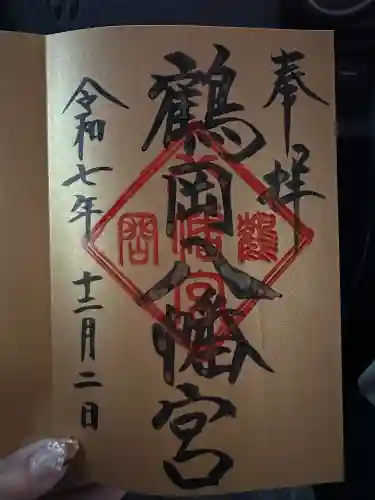 奉拝
鶴岡八幡宮
令和七年十二月二日
鶴岡
八幡宮